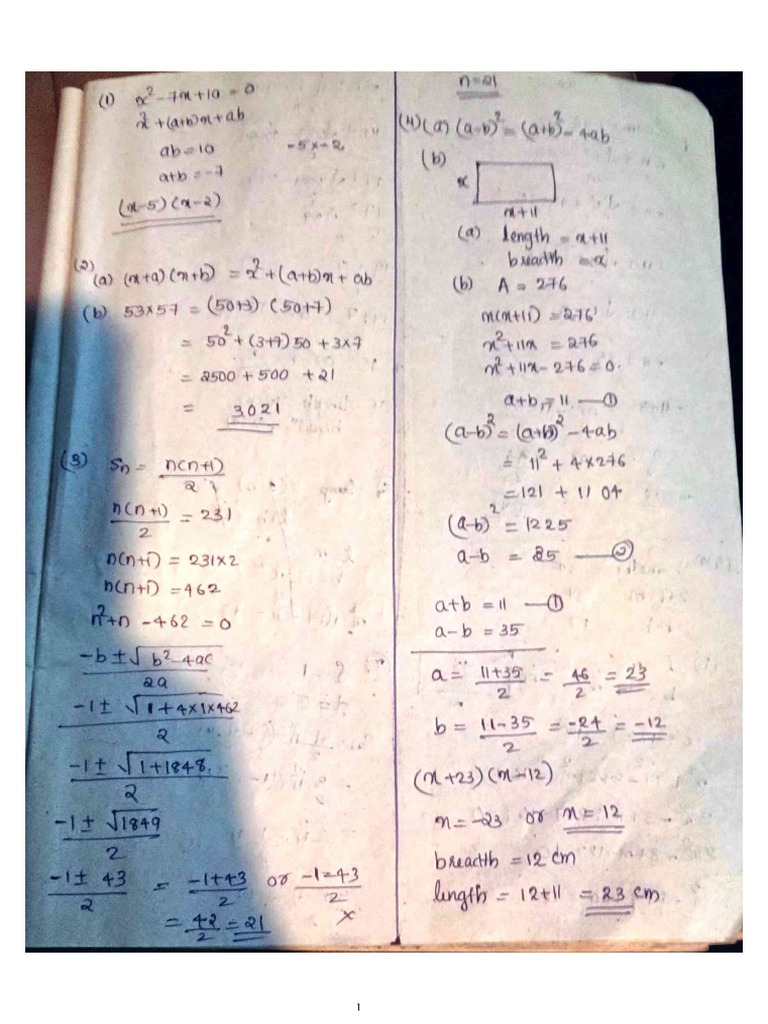 (1) x² - 7x + 10 = 0
x² + (a+b)x + ab
ab = 10 -5 x -2
a+b = -7
(x-5) (x-2)
(2)
(a) (x+a) (x+b) = x² + (a+b)x + ab
(b) 53 × 57 = (50+3) (50+7)
= 50² + (3+7) 50 + 3×7
= 2500 + 500 + 21
= 3021
(3) Sn = n(n+1)/2
n(n+1)/2 = 231
n(n+1) = 231×2
n(n+1) = 462
n²+n - 462 = 0
-b ± √b² - 4ac / 2a
-1 ± √1 + 4×1×462 / 2
-1 ± √1 + 1848 / 2
-1 ± √1849 / 2
-1 ± 43 / 2 = -1+43 / 2 or -1-43 / 2
= 42/2 = 21 ×
n = 21
(4) (a) (a-b)² = (a+b)² - 4ab
(b)
x
x+11
(a) length = x+11
breadth = x
(b) A = 276
x(x+11) = 276
x² + 11x = 276
x² + 11x - 276 = 0
a+b = 11 — ①
(a-b)² = (a+b)² - 4ab
= 11² + 4×276
= 121 + 1104
(a-b)² = 1225
a-b = 35 — ②
a+b = 11 — ①
a-b = 35
a = 11+35 / 2 = 46/2 = 23
b = 11-35 / 2 = -24/2 = -12
(x+23) (x-12)
x = -23 or x = 12
breadth = 12 cm
length = 12+11 = 23 cm
1